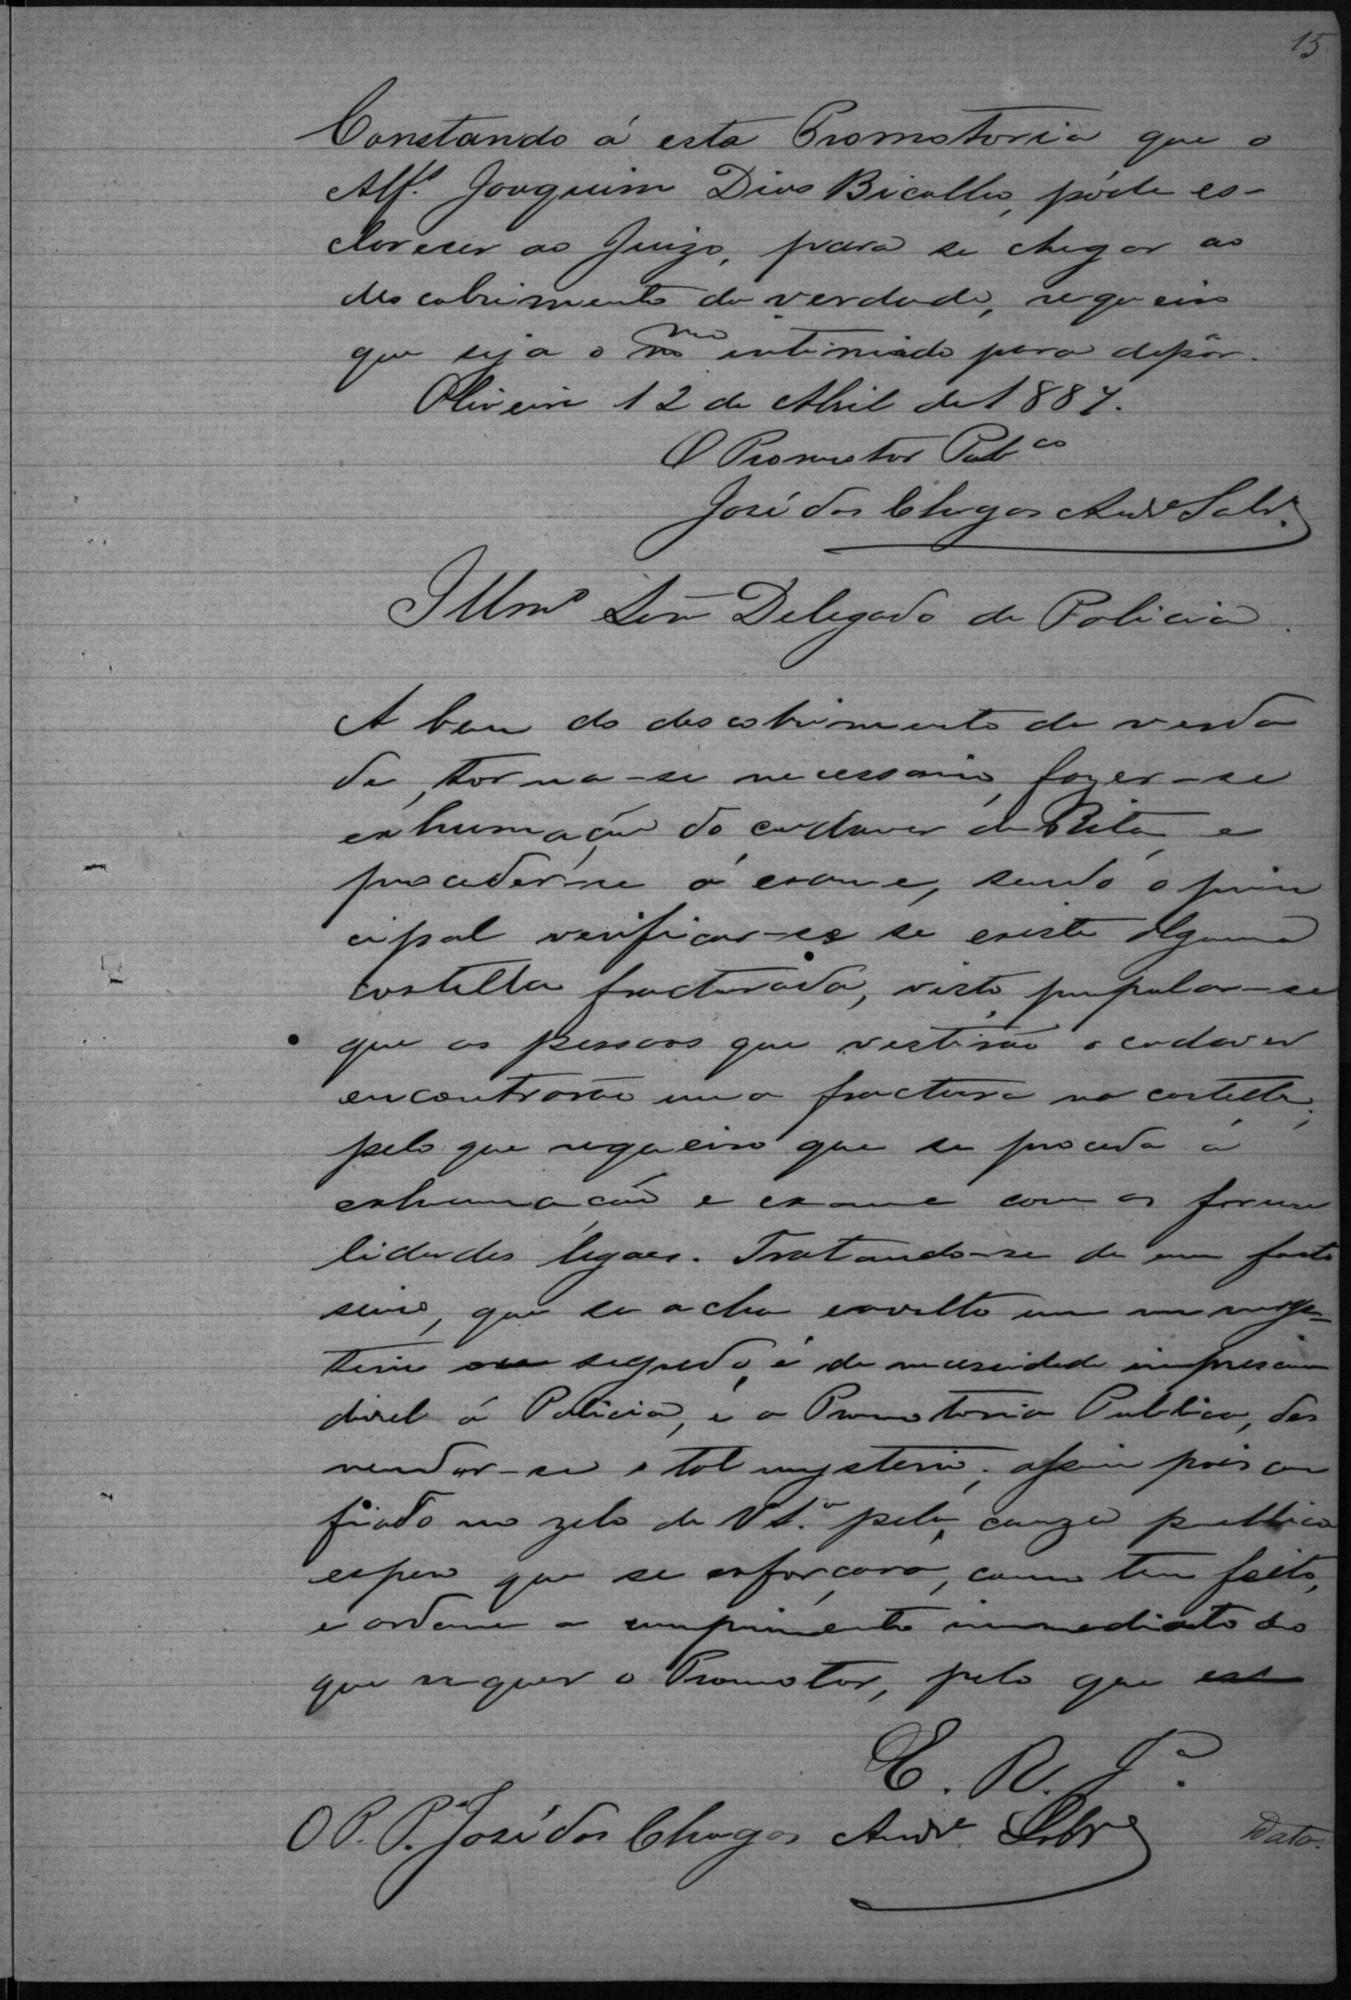 15
Constando á esta Promotoria que o
Alf.s Joaquim Dias Bicalho, póde es-
clarecer ao Juizo, para se chegar ao
descobrimento da verdade, requeiro
que seja o mmo intimado para depôr.
Oliveira 12 de Abril de 1887.
O Promotor Pubco
José das Chagas Andre Sobr.
Illmo Senr Delegado de Policia
A bem do descobrimento da verda
de, torna-se necessario, fazer-se
exhumação do cadaver de Rita e
proceder-se á exame, sendo o prin
cipal verificar-se se existe alguma
costella fracturada, visto, propalar-se
que as pessoas que vestirão o cadaver
encontrarão uma fractura na costella;
pelo que requeiro que se proceda á
exhumação e exame com as forma
lidades legaes. Tratando-se de um facto
serio, que se acha envolto em um mys-
terio segredo, é de necessidade imprescin
divel á Policia, e a Promotoria Publica, des
vendar-se o tal mysterio; assim pois con
fiado no zelo de V S.a pela causa publica
espero que se esforçará, como tem feito,
e ordene o cumprimento immediato do
que requer o Promotor, pelo que
E. R. J.a
O P. P. José das Chagas Andre Sobr
Data.